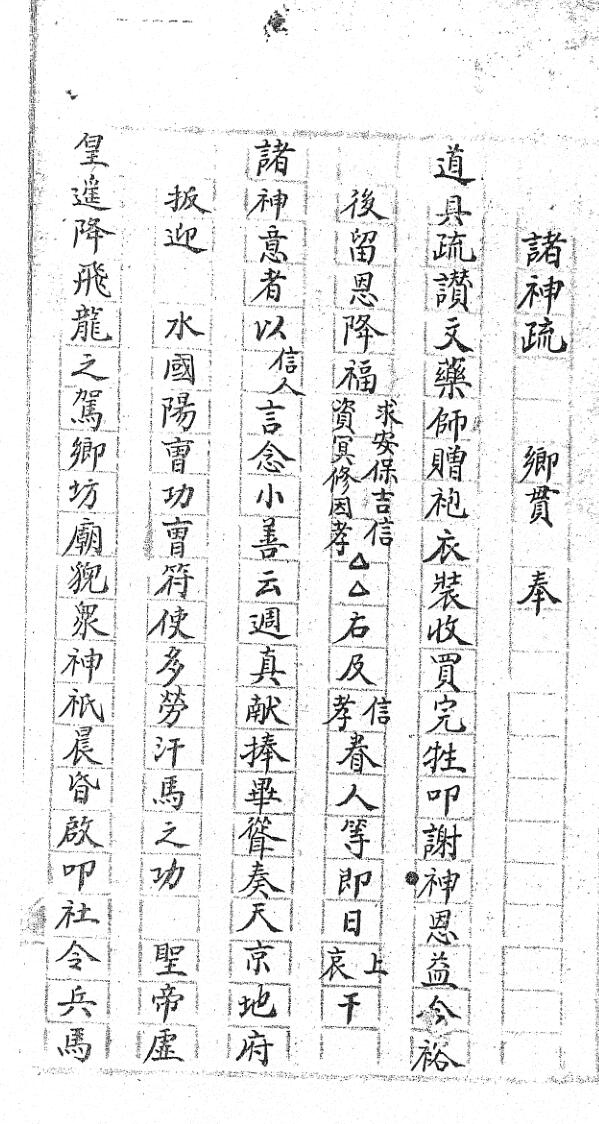 諸神疏 鄉貫 奉
道具疏讚文藥師贈袍衣裝收買完牲叩謝神恩益今裕
後留恩降福求安保吉信資冥修因孝△△右及信孝眷人等即日上哀干
諸神意者以信人言念小善云週真献捧畢聳奏天京地府
扳迎 水國陽曺功曺符使多勞汗馬之功 聖帝虛
皇遙降飛龍之駕鄉坊廟貌眾神祇晨昏啟叩社令兵馬